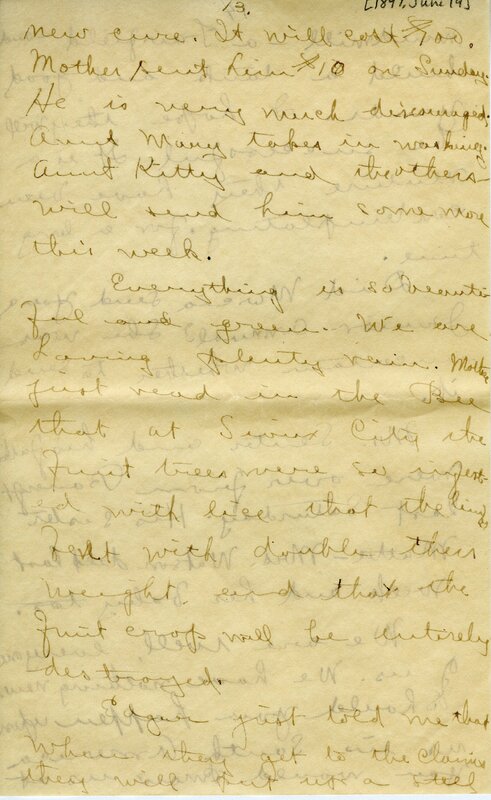 13.
[1897, June 19]
new cure. It will cost $100.
Mother sent him $10 on Sunday.
He is very much discouraged.
Aunt Mary takes in washing.
Aunt Kitty and the others
will send him some more
this week.
Everything is so beauti
ful and green. We are
having plenty rain. Mother
just read in the Bee
that at Sioux City the
fruit trees were so infest-
ed with lice that the limbs
bent with double their
weight and that the
fruit crop will be entirely
destroyed.
Edgar just told me that
when they get to the claims
they will put up a steel